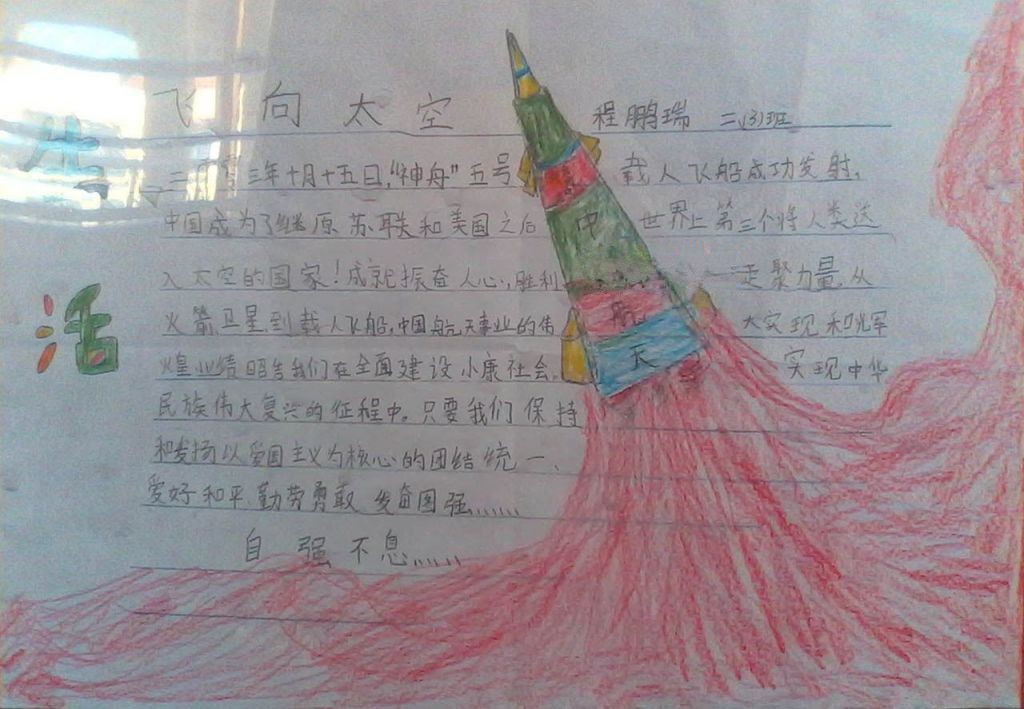 生活
飞向太空 程鹏瑞 三(3)班
二〇〇三年十月十五日,"神舟"五号 载人飞船成功发射,
中国成为了继原苏联和美国之后 世界上第三个将人类送
入太空的国家!成就振奋人心,胜利 聚力量,从
火箭卫星到载人飞船,中国航天事业的伟 大实现和光军
煌业绩昭告我们在全面建设小康社会, 实现中华
民族伟大复兴的征程中。只要我们保持
和发扬以爱国主义为核心的团结统一、
爱好和平、勤劳勇敢 发奋图强......
自强不息......
中
航
天